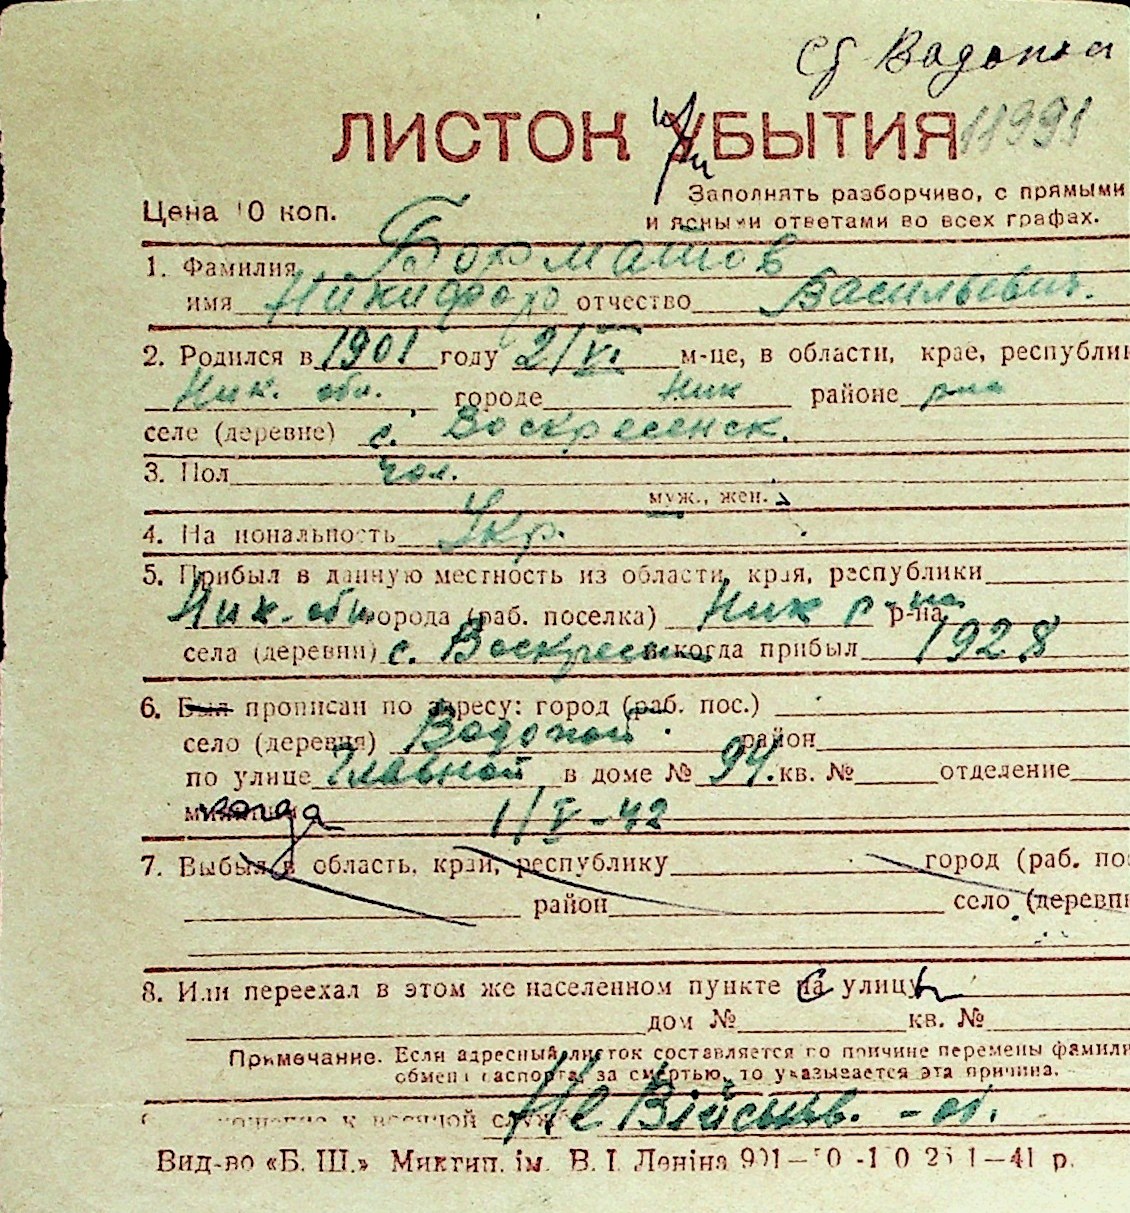 Сб Водопой
ЛИСТОК УБЫТИЯ 11991
при
Заполнять разборчиво, с прямыми
Цена 10 коп.
и ясными ответами во всех графах.
1. Фамилия Бохматов
имя Никифор отчество Васильевич.
2. Родился в 1901 году 2/VI. м-це, в области, крае, республик
Ник. обл. городе Ник районе р-на
селе (деревне) с. Воскресенск.
3. Пол чол.
муж., жен.
4. Национальность Укр.
5. Прибыл в данную местность из области, края, республики
Ник. обл. города (раб. поселка) Ник р-на р-на
села (деревни) с. Воскресенск и когда прибыл 1928
6. Был прописан по адресу: город (раб. пос.)
село (деревня) Водопой район
по улице Главной в доме № 94. кв. № отделение
когда 1/V-42
7. Выбыл в область, край, республику город (раб. пос
район село (деревн
8. Или переехал в этом же населенном пункте на с улицу ы
дом № кв. №
Примечание. Если адресный листок составляется по причине перемены фамили
обмена паспорта, за смертью, то указывается эта причина.
ношение к военной служ Не Військв. -об.
Вид-во «Б. Ш.» Миктип. ім. В. І. Леніна 1—41 р.